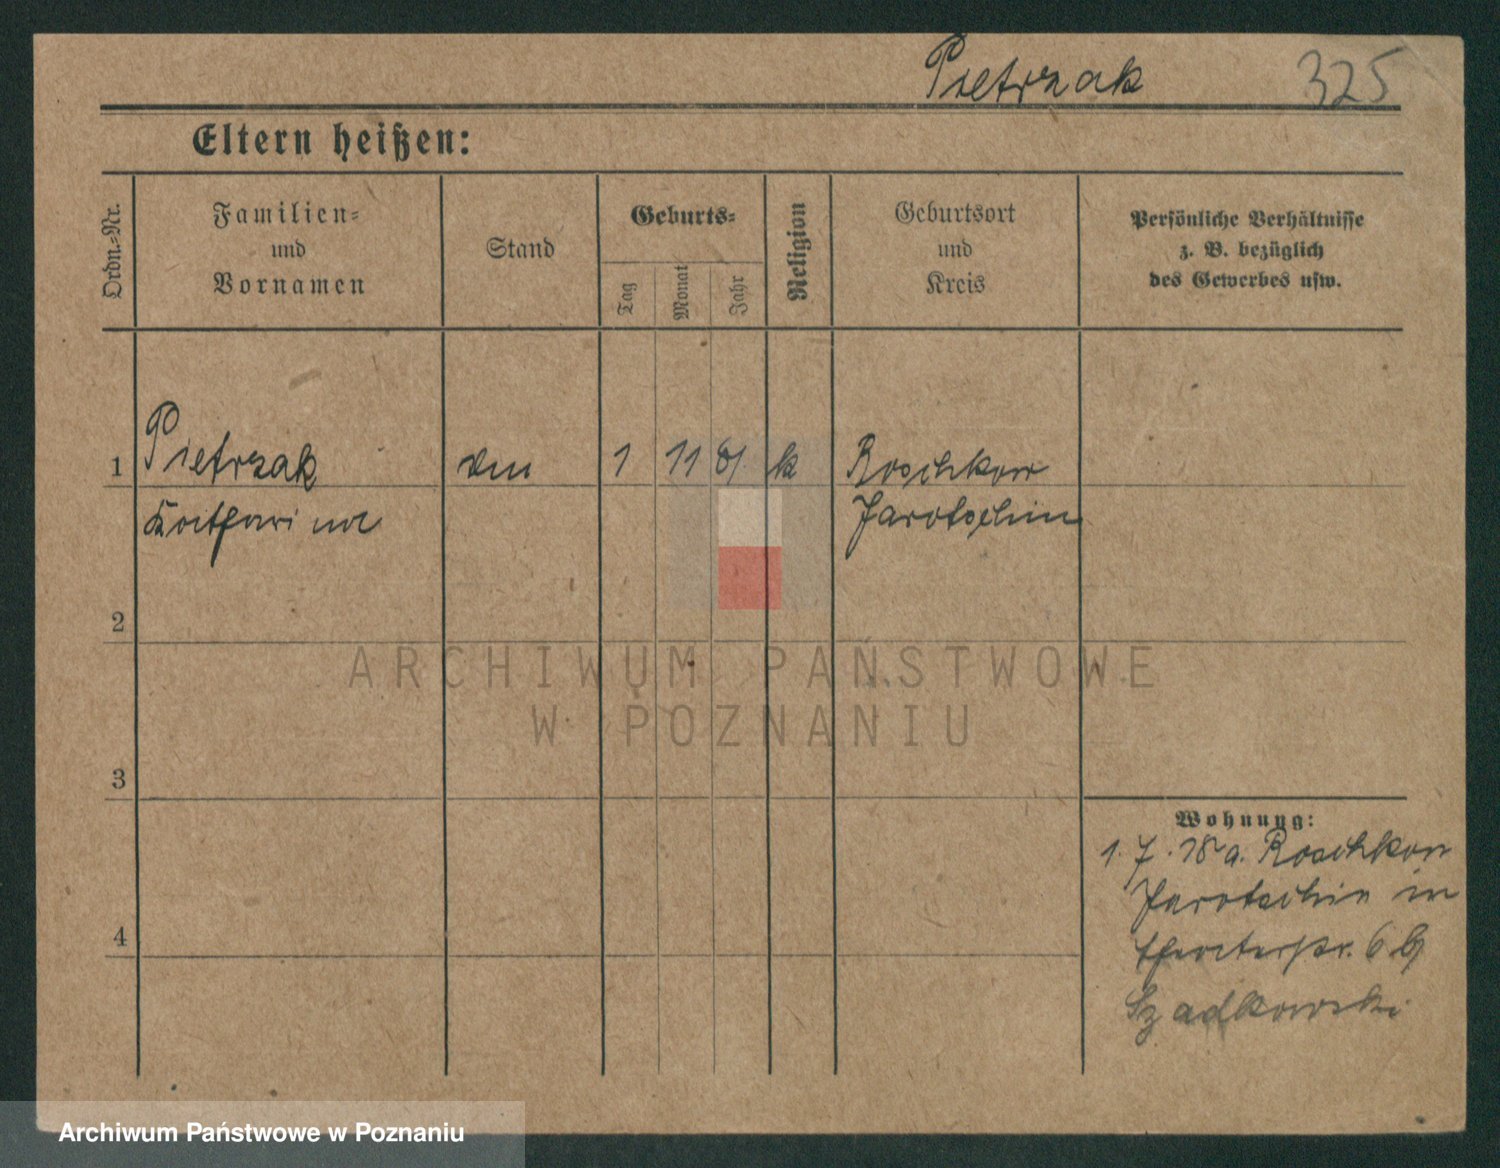 Pietrzak 325
Eltern heißen:
Ordn.-Nr.
Familien-
und
Vornamen
Stand
Geburts-
Tag
Monat
Jahr
Religion
Geburtsort
und
Kreis
Persönliche Verhältnisse
z. B. bezüglich
des Gewerbes usw.
1 Pietrzak 1 11 81. k Roschkow
Katharina Jarotschin
2
3
4
Wohnung:
1. 7. 18 a. Roschkow
Jarotschin in
6 b/
Szadkowski
ARCHIWUM PAŃSTWOWE
W POZNANIU
Archiwum Państwowe w Poznaniu